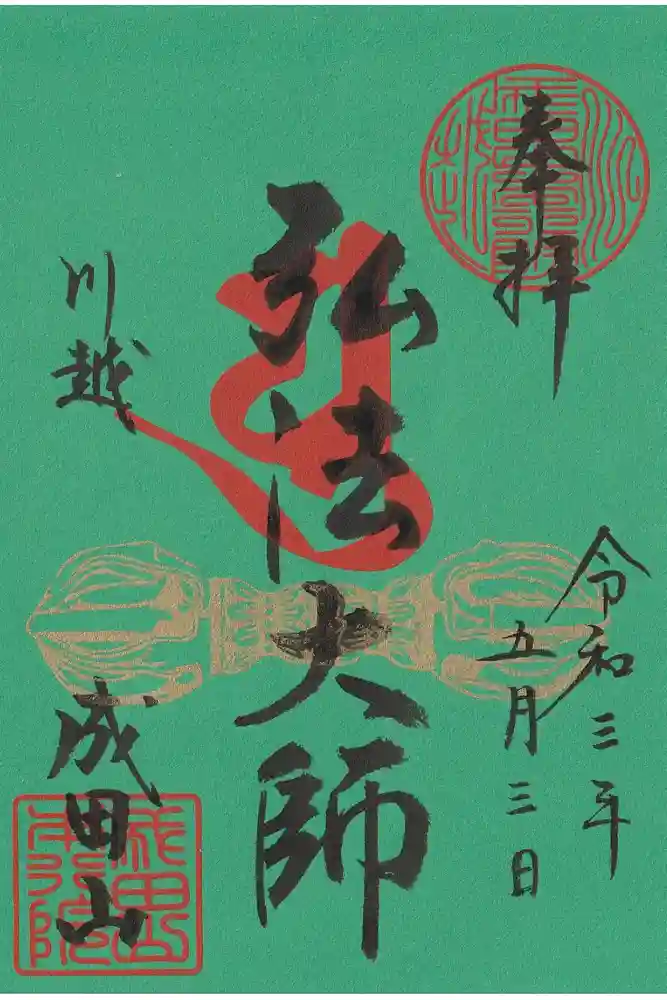 奉拝
令和三年
五月三日
弘法大師
川越
成田山